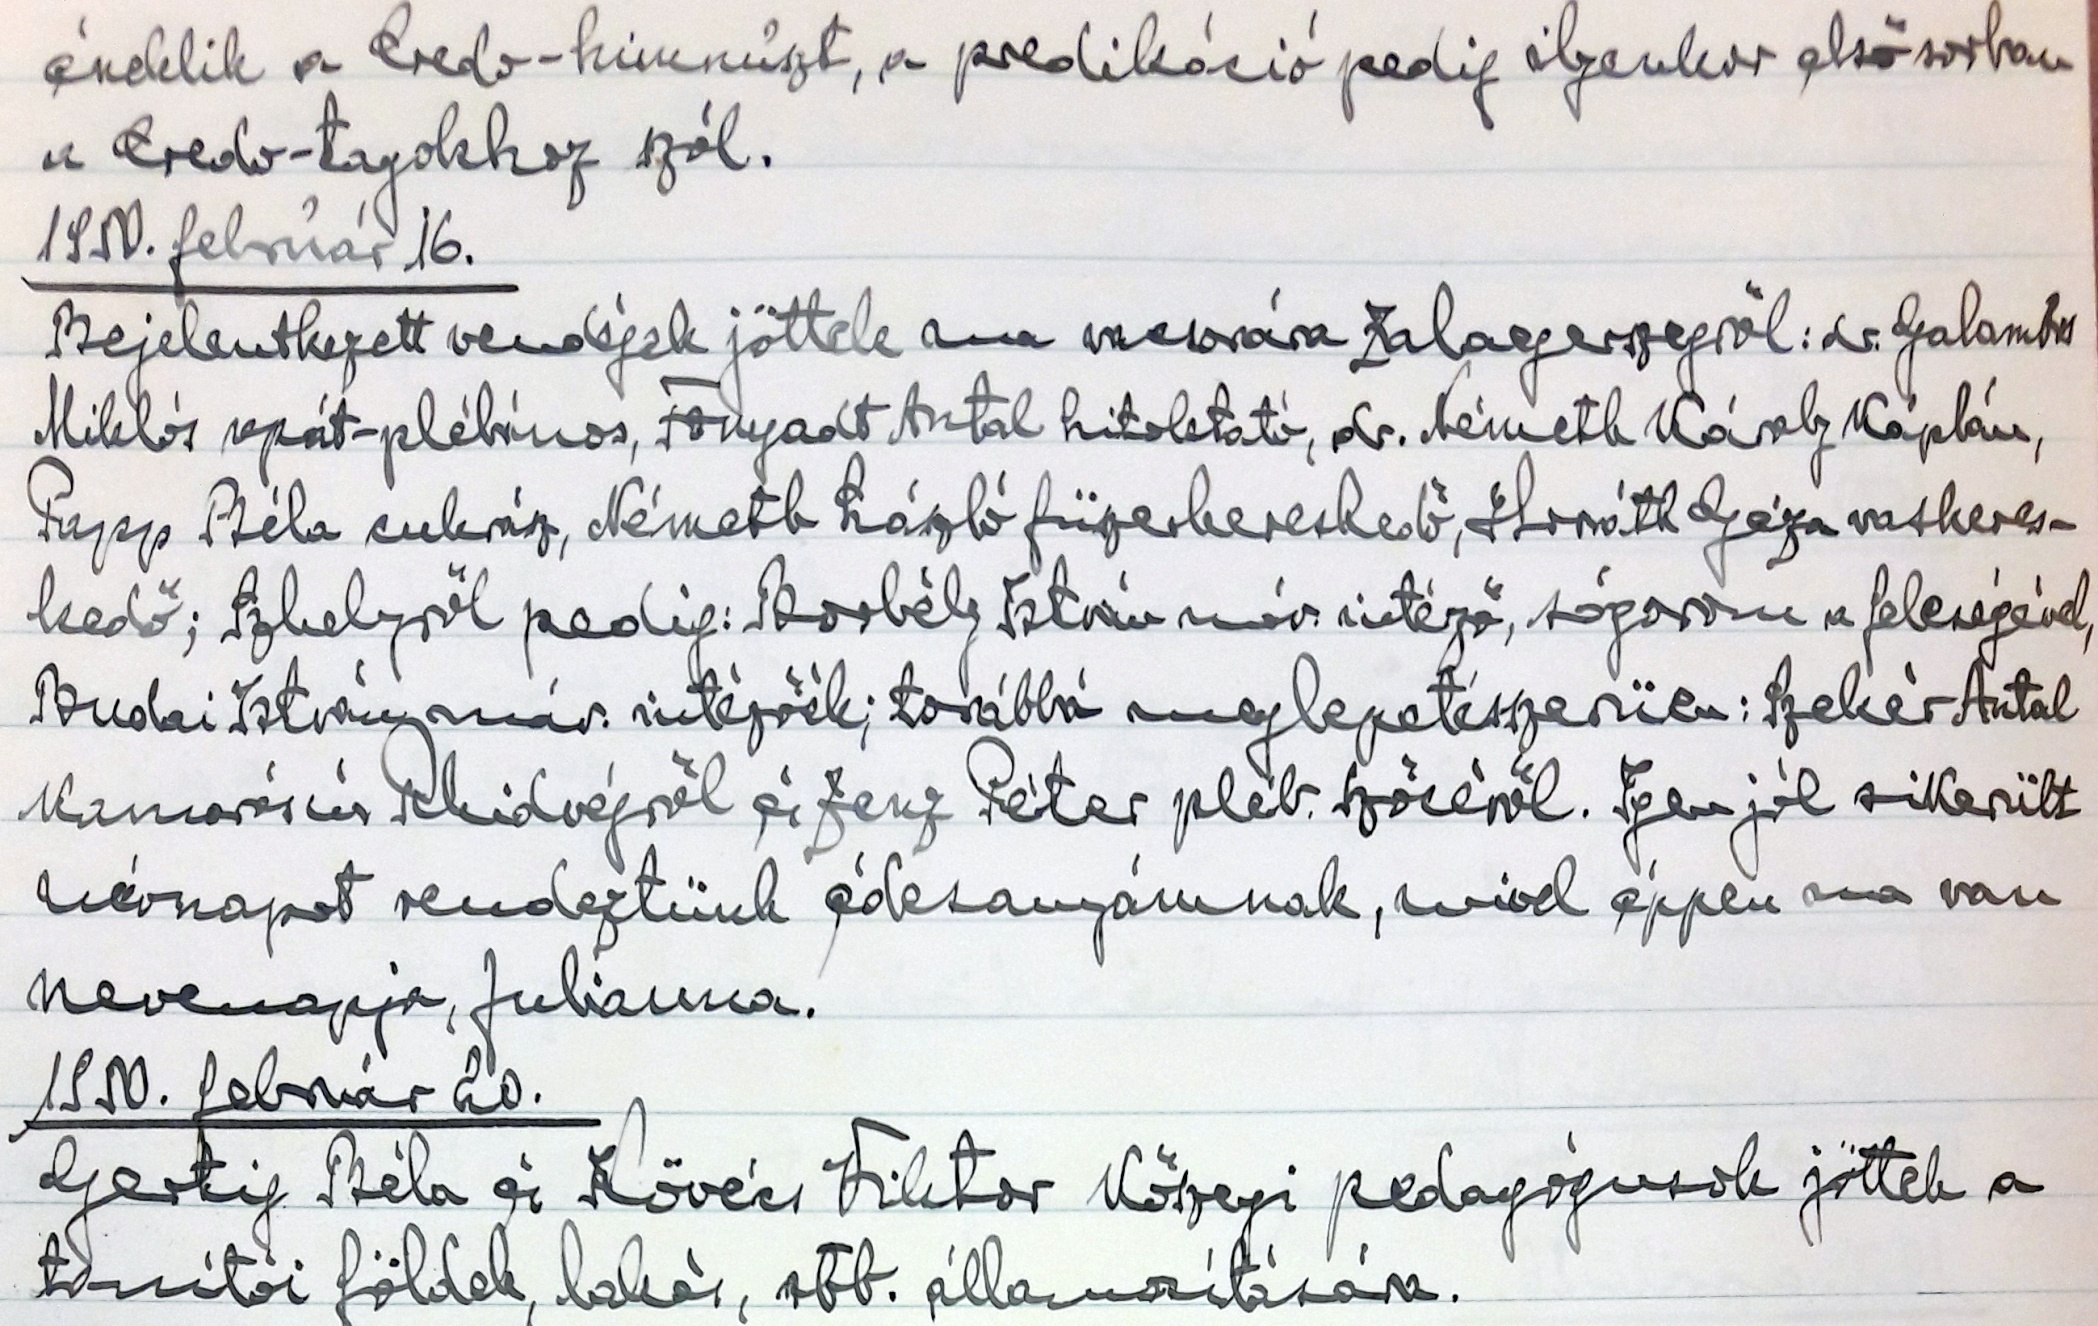 éneklik a Credo-himnúszt, a predikáció pedig ilyenkor elsősorban
a Credo-tagokhoz szól.
1950. február 16.
Bejelentkezett vendégek jöttek ma vacsorára Zalaegerszegről: dr. Galambos
Miklós apát-plébános, Fonyadt Antal hitoktató, dr. Németh Károly káplán,
Papp Béla cukrász, Németh László füszerkereskedő, Horváth Géza vaskeres-
kedő; Szhelyről pedig: Borbély István máv. intéző, sógorom a feleségével,
Budai István máv. intézőék; továbbá meglepetésszerüen: Szekér Antal
Kamarásúr Rhidvégről és Zenz Péter pléb. Szőcéről. Igen jól sikerült
névnapot rendeztünk édesanyámnak, mivel éppen ma van
nevenapja, Julianna.
1950. február 20.
Gertig Béla és Kövécs Viktor Kőszegi pedagógusok jöttek a
tanítói földek, lakás, stb. államosítására.